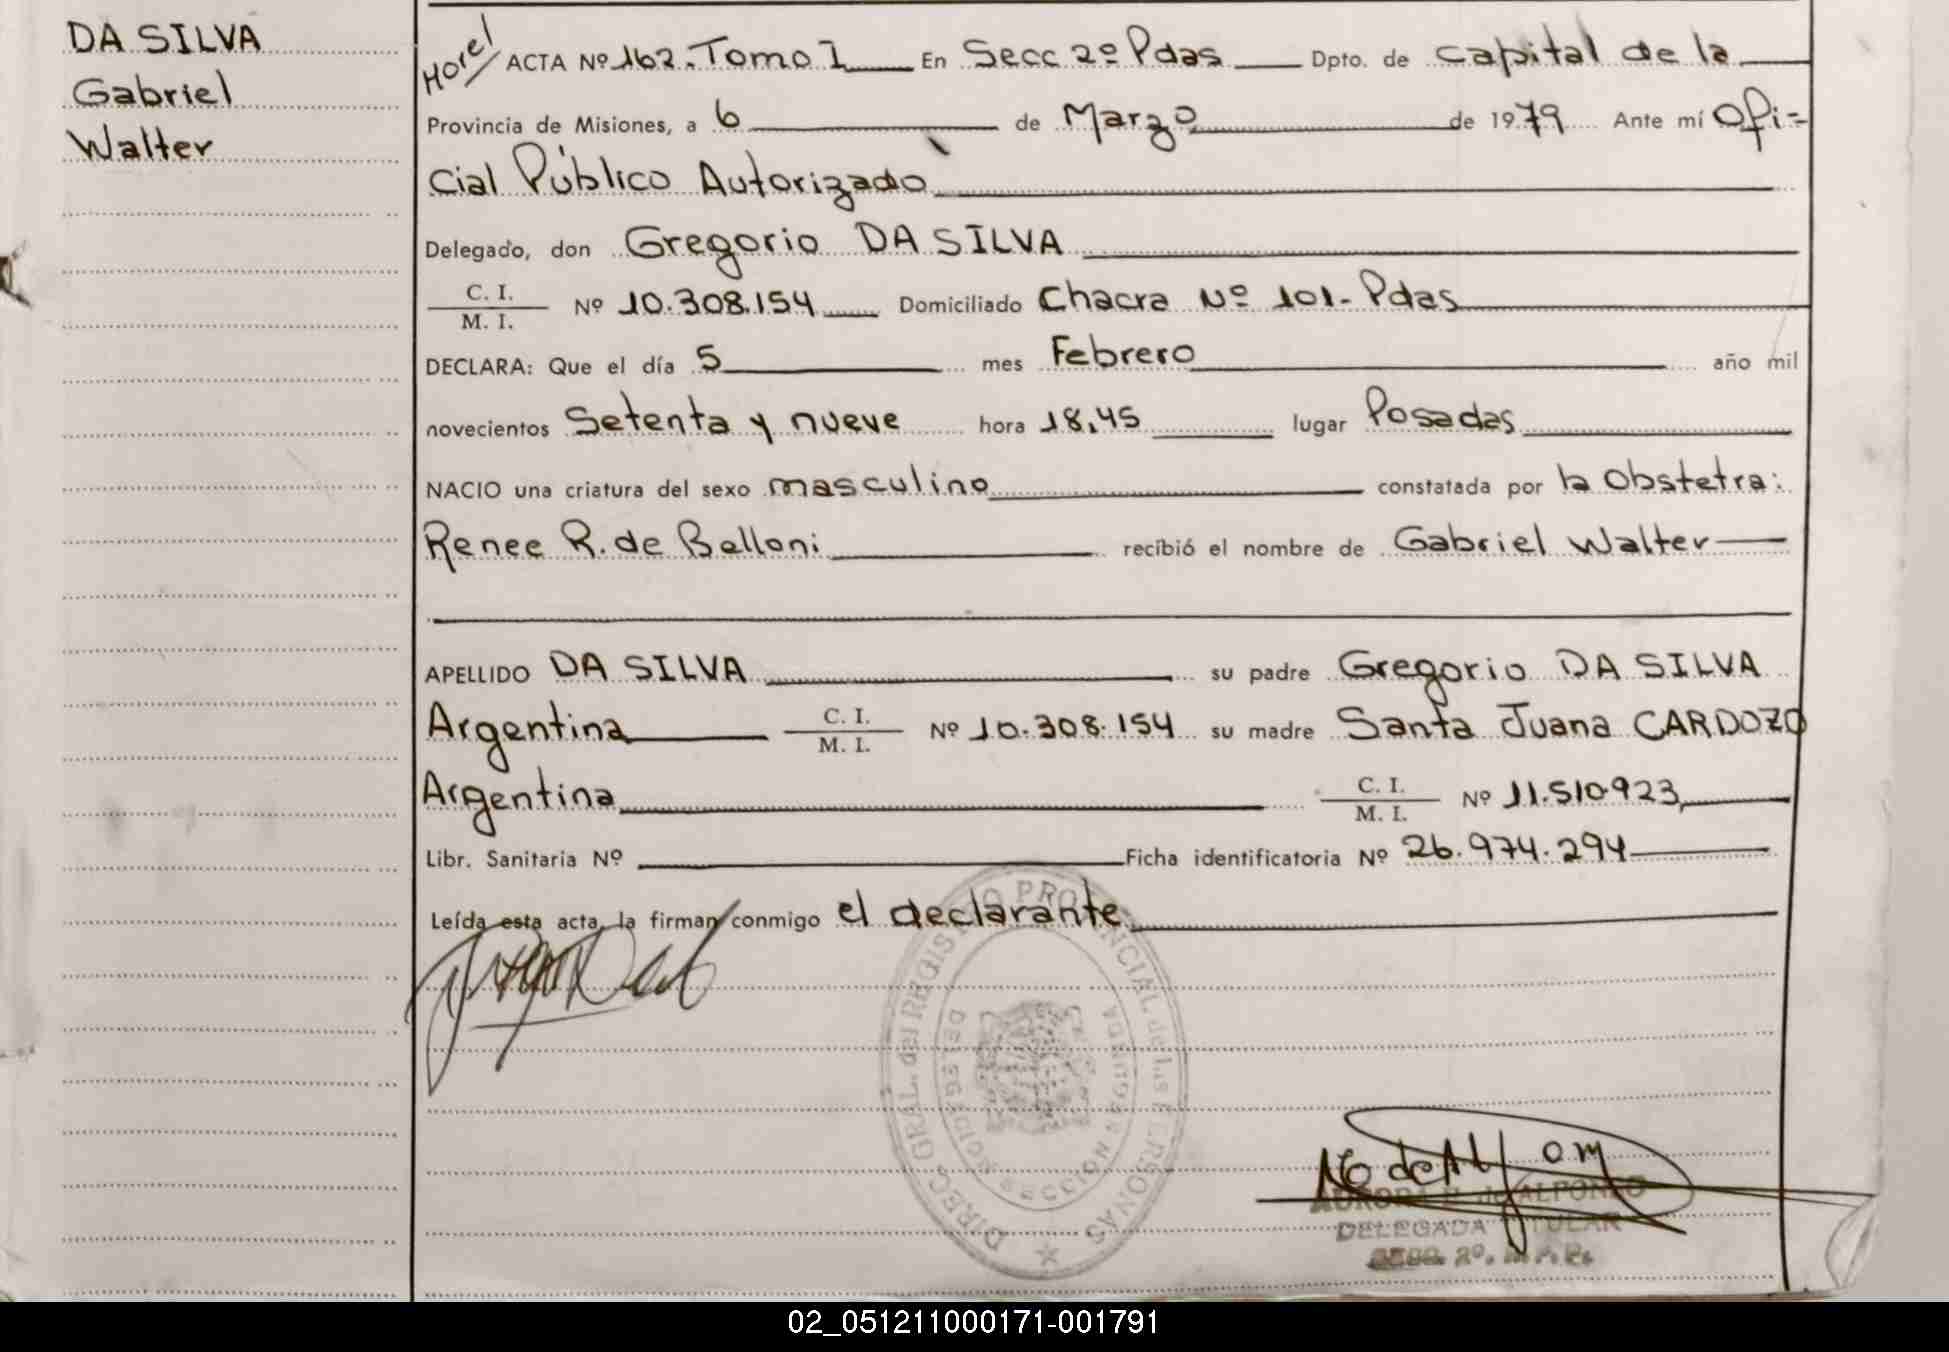 DA SILVA
Gabriel
Walter
ACTA Nº 162. Tomo I En Secc 2º Pdas Dpto. de Capital de la
Provincia de Misiones, a 6 de Marzo de 1979 Ante mí Ofi=
cial Público Autorizado
Delegado, don Gregorio DA SILVA
C. I.
M. I. Nº 10.308.154 Domiciliado Chacra Nº 101- Pdas
DECLARA: Que el día 5 mes Febrero año mil
novecientos Setenta y nueve hora 18,45 lugar Posadas
NACIO una criatura del sexo masculino constatada por la Obstetra:
Renee R. de Belloni recibió el nombre de Gabriel Walter
APELLIDO DA SILVA su padre Gregorio DA SILVA
Argentina C. I.
M. I. Nº 10.308.154 su madre Santa Juana CARDOZO
Argentina C. I.
M. I. Nº 11.510.923
Libr. Sanitaria Nº Ficha identificatoria Nº 26.974.294
Leída esta acta, la firman conmigo el declarante
DIREC. GRAL. del REGISTRO PROVINCIAL de las PERSONAS
DELEGACION SECCION SEGUNDA
de ALFONSO
DELEGADA TITULAR
SECC. 2º.
02_051211000171-001791